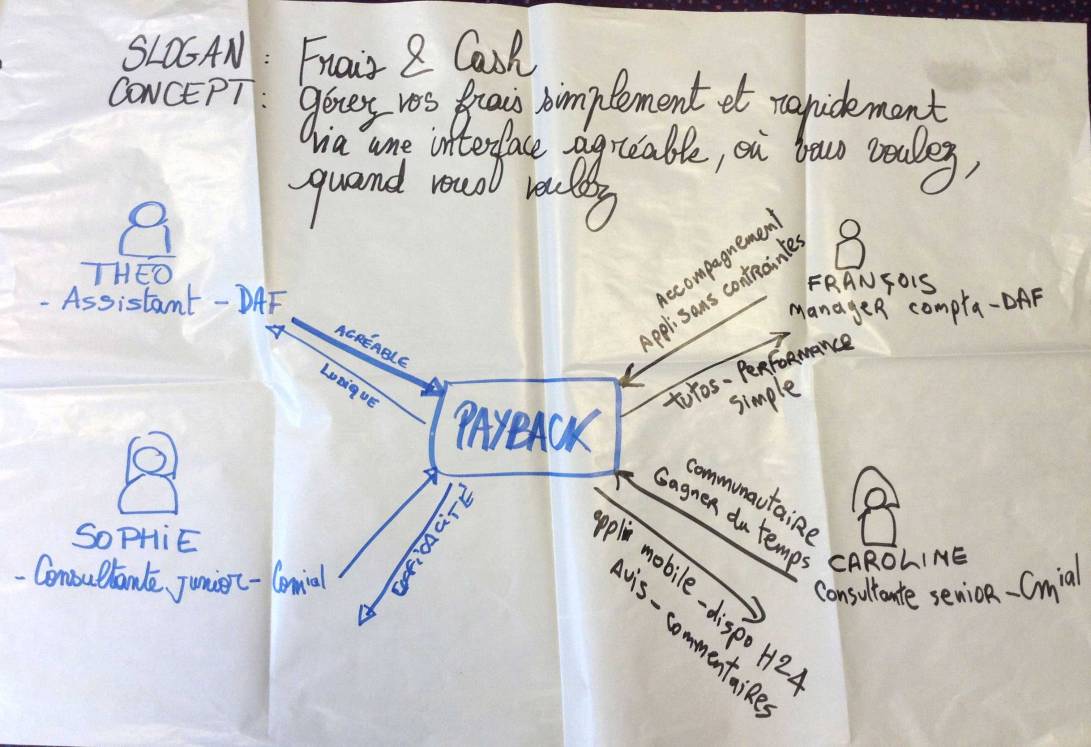 SLOGAN : Frais & Cash
CONCEPT : gérez vos frais simplement et rapidement
via une interface agréable, où vous voulez,
quand vous voulez
THÉO
- Assistant - DAF
AGRÉABLE
LUDIQUE
Accompagnement
Appli sans contraintes
FRANÇOIS
Manager compta - DAF
tutos - PERFORMANCE
simple
PAYBACK
SOPHIE
- Consultante junior - Comial
EFFICACITÉ
Communautaire
Gagner du temps
CAROLINE
Consultante senior - Cmial
appli mobile - dispo H24
Avis - commentaires